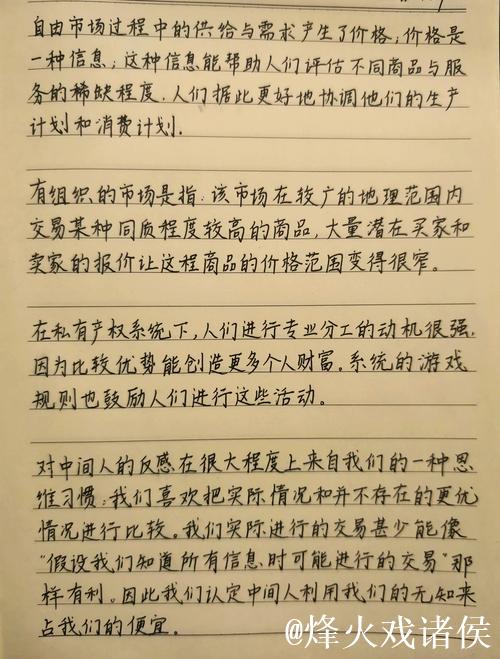 自由市场过程中的供给与需求产生了价格;价格是
一种信息;这种信息能帮助人们评估不同商品与服
务的稀缺程度.人们据此更好地协调他们的生产
计划和消费计划.
有组织的市场是指:该市场在较广的地理范围内
交易某种同质程度较高的商品,大量潜在买家和
卖家的报价让这程商品的价格范围变得很窄。
在私有产权系统下,人们进行专业分工的动机很强.
因为比较优势能创造更多个人财富.系统的游戏
规则也鼓励人们进行这些活动。
对中间人的反感在很大程度上来自我们的一种思
维习惯:我们喜欢把实际情况和并不存在的更优
情况进行比较。我们实际进行的交易甚少能像
"假设我们知道所有信息时可能进行的交易"那
样有利。因此我们认定中间人利用我们的无知来
占我们的便宜。
@烽火戏诸侯